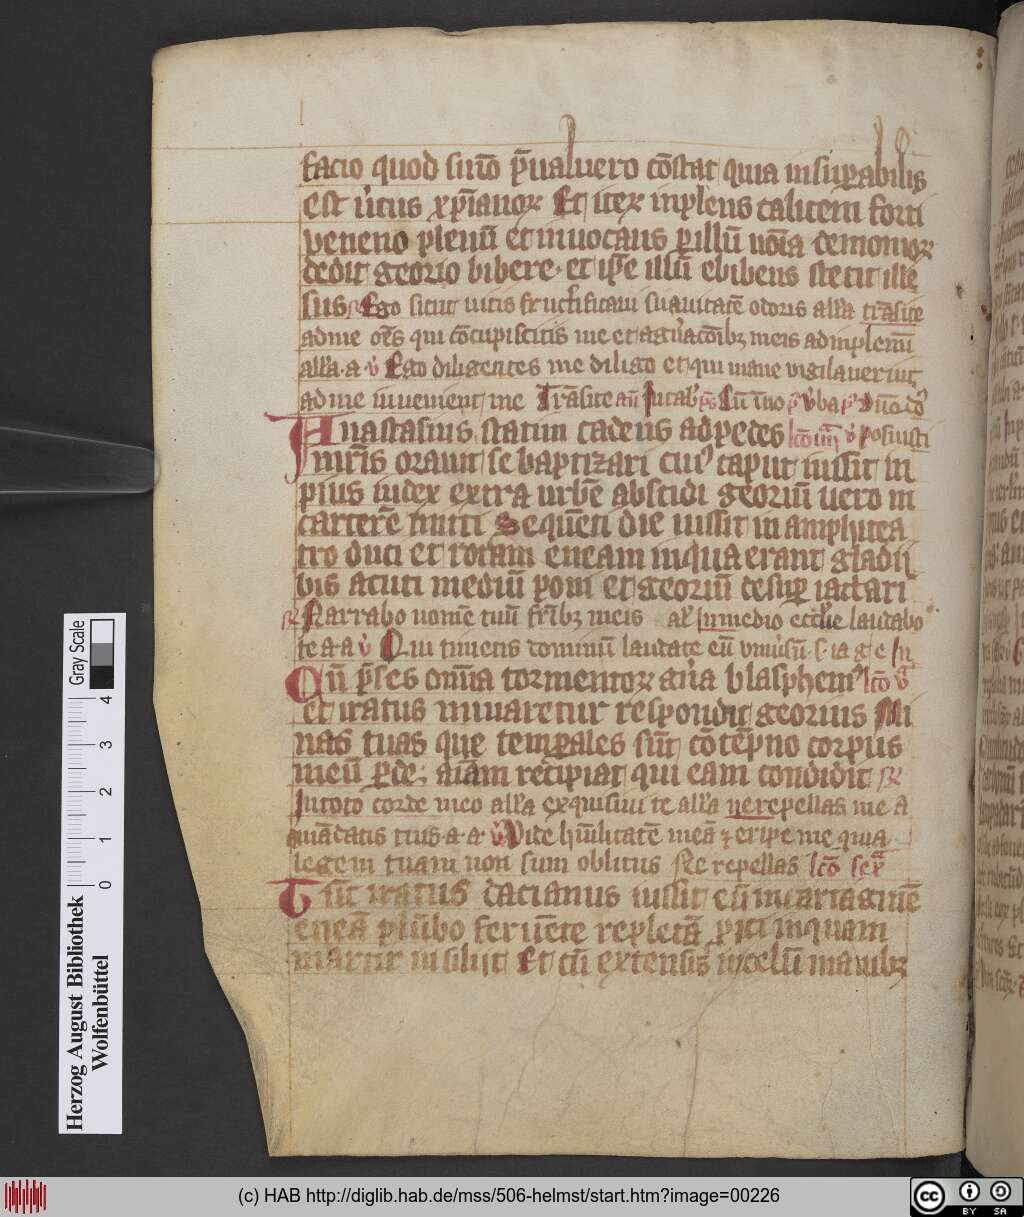 facio quod si nō p̄ualuero cōstat quia insuꝑabilis
est v̓tus xp̄ianoꝝ Et iteꝝ inplens calicem forti
veneno plenū et inuocans ꝑ illū noīa demonioꝝ
dedit georio bibere · et ip̄e illū ebibens stetit ille
sus Ego sicut uitis fructificaui suauitatē odoris all̓a trāsite
ad me om̄s qui cōcupiscitis me et a gn̄acōibꝫ meis adinplemī
all̓a · a · v̓ Ego diligentes me diligo et qui mane vigilauerint
ad me inuenient me Trāsite
Anastasius statim cadens ad pedes v̓ Posuisti
mr̄is orauit se baptizari cuiꝰ caput iussit in
pius iudex extra urbē abscidi georiū uero in
carcerē mitti Sequēti die iussit in amphitea
tro duci et rotam eneam in qua erant gladii
bis acuti mediū poni et georiū desuꝑ iactari
Narrabo nomē tuū fr̄ibꝫ meis al̓ in medio ecclīe laudabo
te a · a v̓ Qui timetis dominū laudate eū vniūsū s · ia g e In
Cū p̄ses om̄ia tormentoꝝ gn̄a blasphemꝰ lcō v
et iratus minaretur respondit georius Mi
nas tuas que temꝑales sūt cōtēpno corpus
meū ꝑde · aīam recipiat qui eam condidit ℟
In toto corde meo all̓a exquisiui te all̓a ne repellas me A
māndatis tuis · a · a · v̓ Vide hūilitatē meā ⁊ eripe me quia
legem tuam non sum oblitus Ne repellas lcō sexͣ
Tūc iratus dacianus iussit eū in cartaginē
eneā plūbo feruēte repletā ꝓici in quam
martir insiliit Et cū extensis in celū manibꝫ
Herzog August Bibliothek
Wolfenbüttel
Gray Scale
0 1 2 3 4
(c) HAB http://diglib.hab.de/mss/506-helmst/start.htm?image=00226
cc BY SA